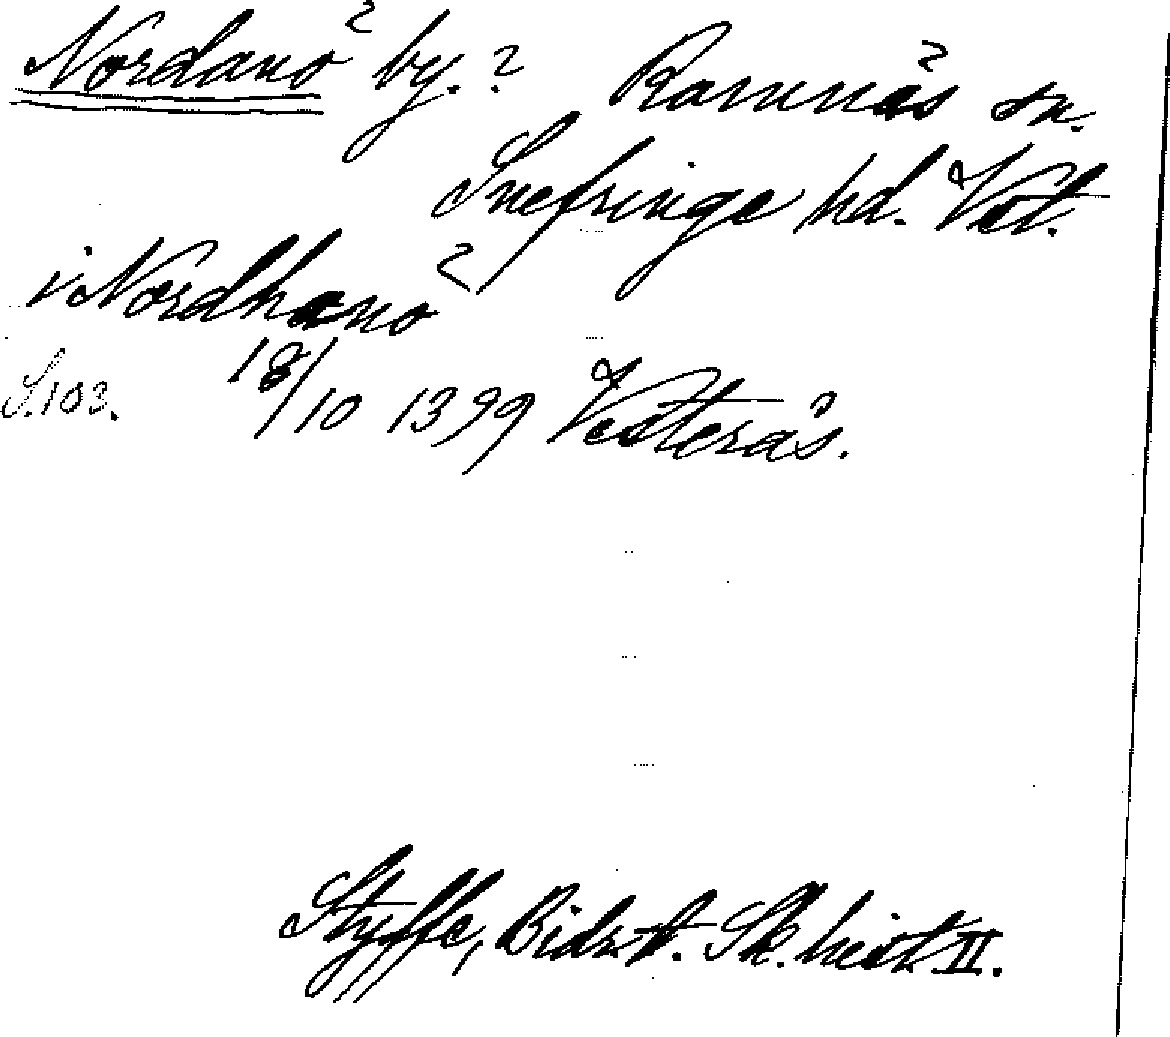 Nordanö by.? Ramnäs sn.
Snefringe hd. Vst.
i Nordhanö
S.103. 18/10 1399 Vesterås.
Styffe, Bidr. t. Sk. hist. II.